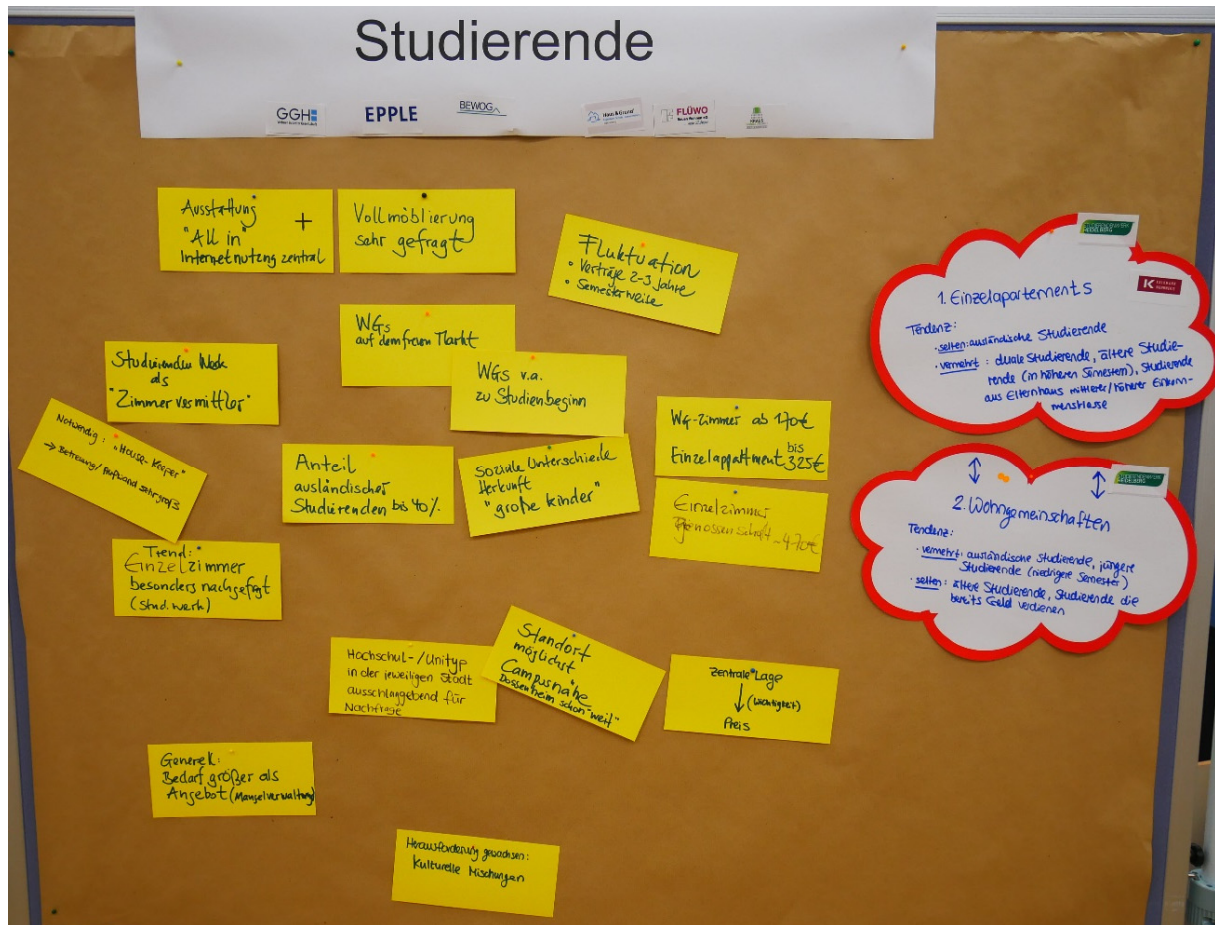 Studierende
GGH
EPPLE
BEWOG
Haus & Grund
FLÜWO
Ausstattung +
"All in"
Internetnutzng zentral
Vollmöblierung
sehr gefragt
Fluktuation
• Verträge 2-3 Jahre
• Semesterweise
WGs
auf dem freien Markt
Studierenden Werk
als
"Zimmervermittler"
WGs v.a.
zu Studienbeginn
WG-Zimmer ab 170€
bis
Einzelappartment 325€
Notwendig: "House-Keeper"
→ Betreuung/Aufwand sehr groß
Anteil
ausländischer
Studierenden bis 40%
Soziale Unterschiede
Herkunft
"große Kinder"
Einzelzimmer
Genossenschaft ~470€
Trend:
Einzelzimmer
besonders nachgefragt
(Stud.werk)
Hochschul-/Unityp
in der jeweiligen Stadt
ausschlaggebend für
Nachfrage
Standort
möglichst
Campusnähe
Dossenheim schon "weit"
Zentrale Lage
↓ (Wichtigkeit)
Preis
Generell:
Bedarf größer als
Angebot (Mangelverwaltung)
Herausforderung gewachsen:
Kulturelle Mischungen
HEIDELBERG
1. Einzelapartements
Tendenz:
· selten: ausländische Studierende
· vermehrt: duale Studierende, ältere Studie-
rende (in höheren Semestern), Studierende
aus Elternhaus mittlerer/höherer Einkom-
mensklasse
HEIDELBERG
2. Wohngemeinschaften
Tendenz:
· vermehrt: ausländische Studierende, jüngere
Studierende (niedrigere Semester)
· selten: ältere Studierende, Studierende die
bereits Geld verdienen